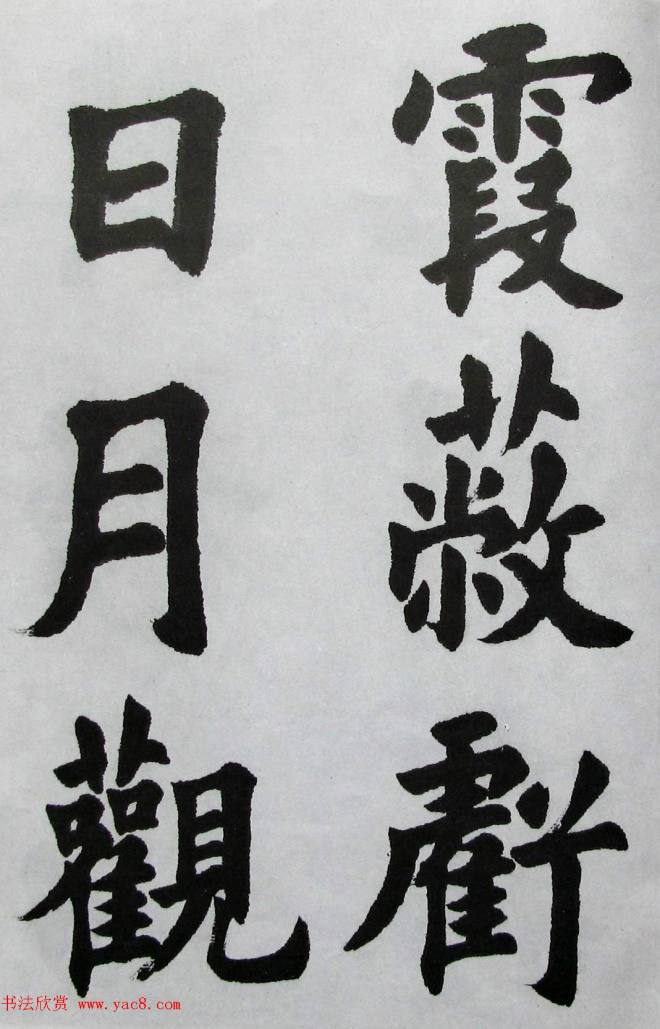 霞蔽虧
日月觀
书法欣赏 www.yac8.com